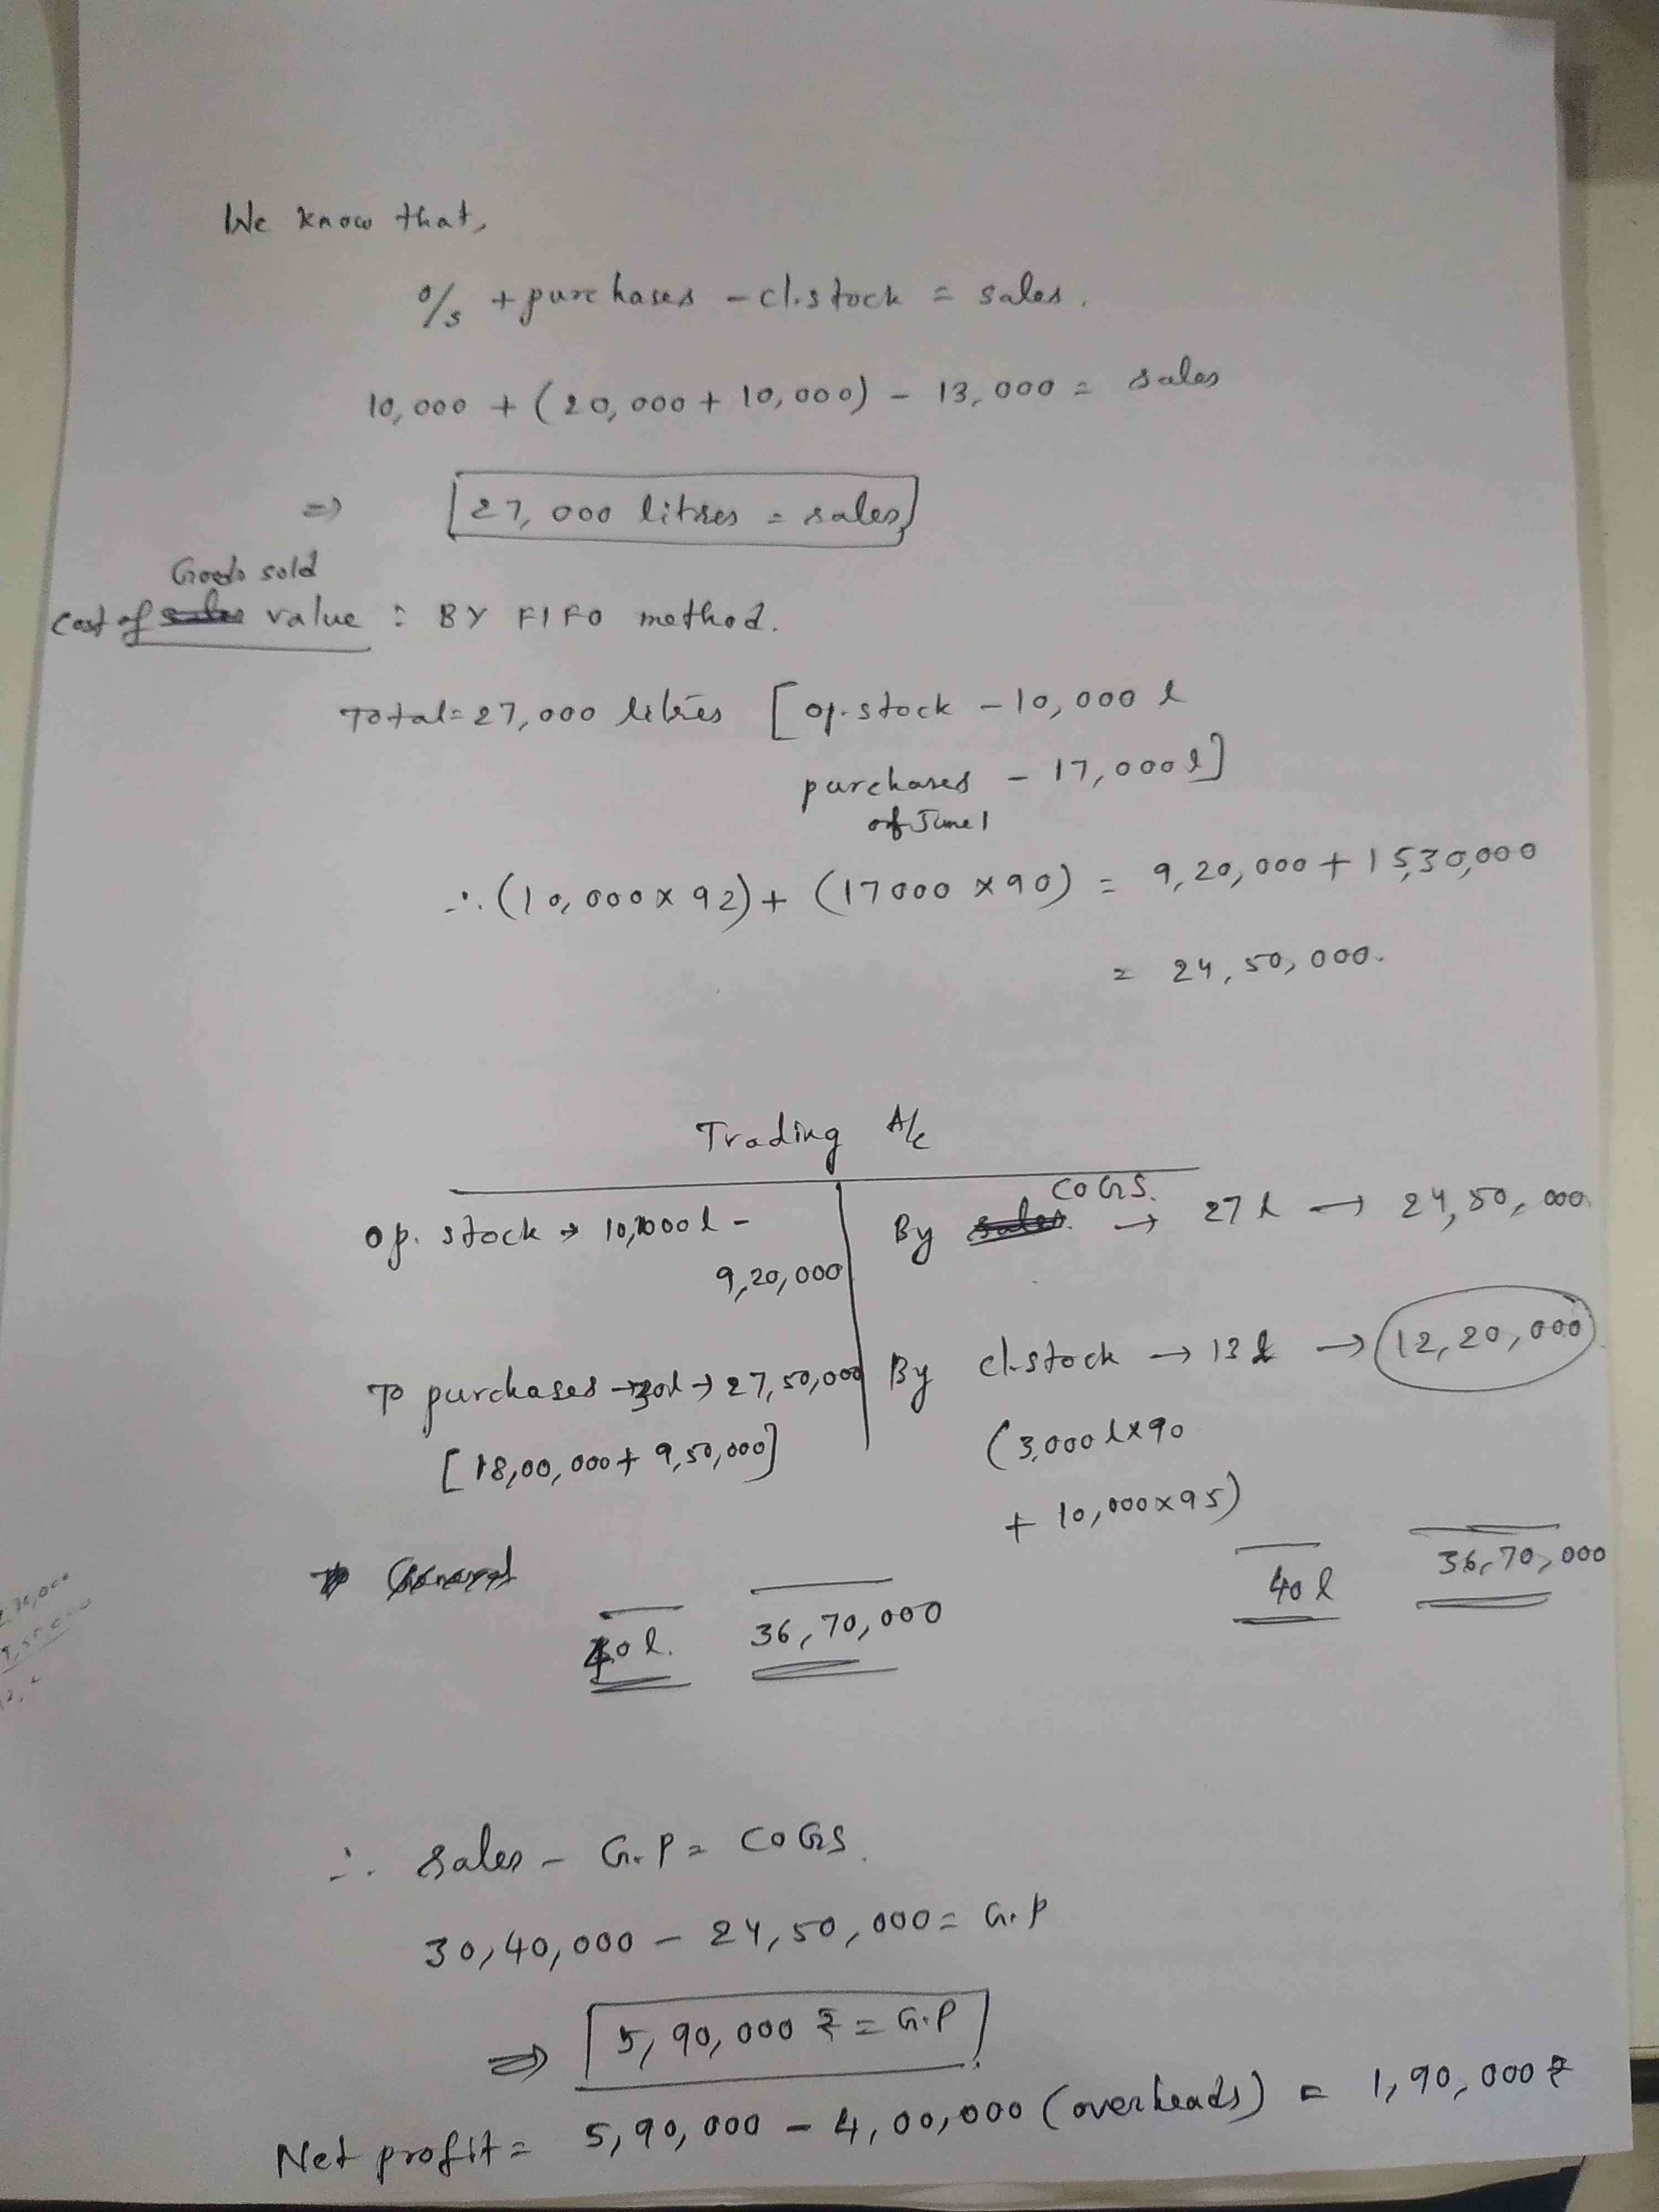 We know that,
o/s + purchases - cl.stock = sales.
10,000 + (20,000 + 10,000) - 13,000 = sales
=> 27,000 litres = sales
Goods sold
cost of value : BY FIFO method.
Total = 27,000 litres [op.stock - 10,000 l
purchases - 17,000 l]
of June 1
∴ (10,000 x 92) + (17000 x 90) = 9,20,000 + 15,30,000
= 24,50,000.
Trading A/c
COGS.
op. stock → 10,000 l - By sales. → 27 l → 24,50,000
9,20,000
To purchases → 30l → 27,50,000 By cl.stock → 13 l → 12,20,000
[18,00,000 + 9,50,000] (3,000 l x 90
+ 10,000 x 95)
40 l. 36,70,000 40 l 36,70,000
∴ sales - G.P = COGS.
30,40,000 - 24,50,000 = G.P
=> 5,90,000 ₹ = G.P
Net profit = 5,90,000 - 4,00,000 (overheads) = 1,90,000 ₹